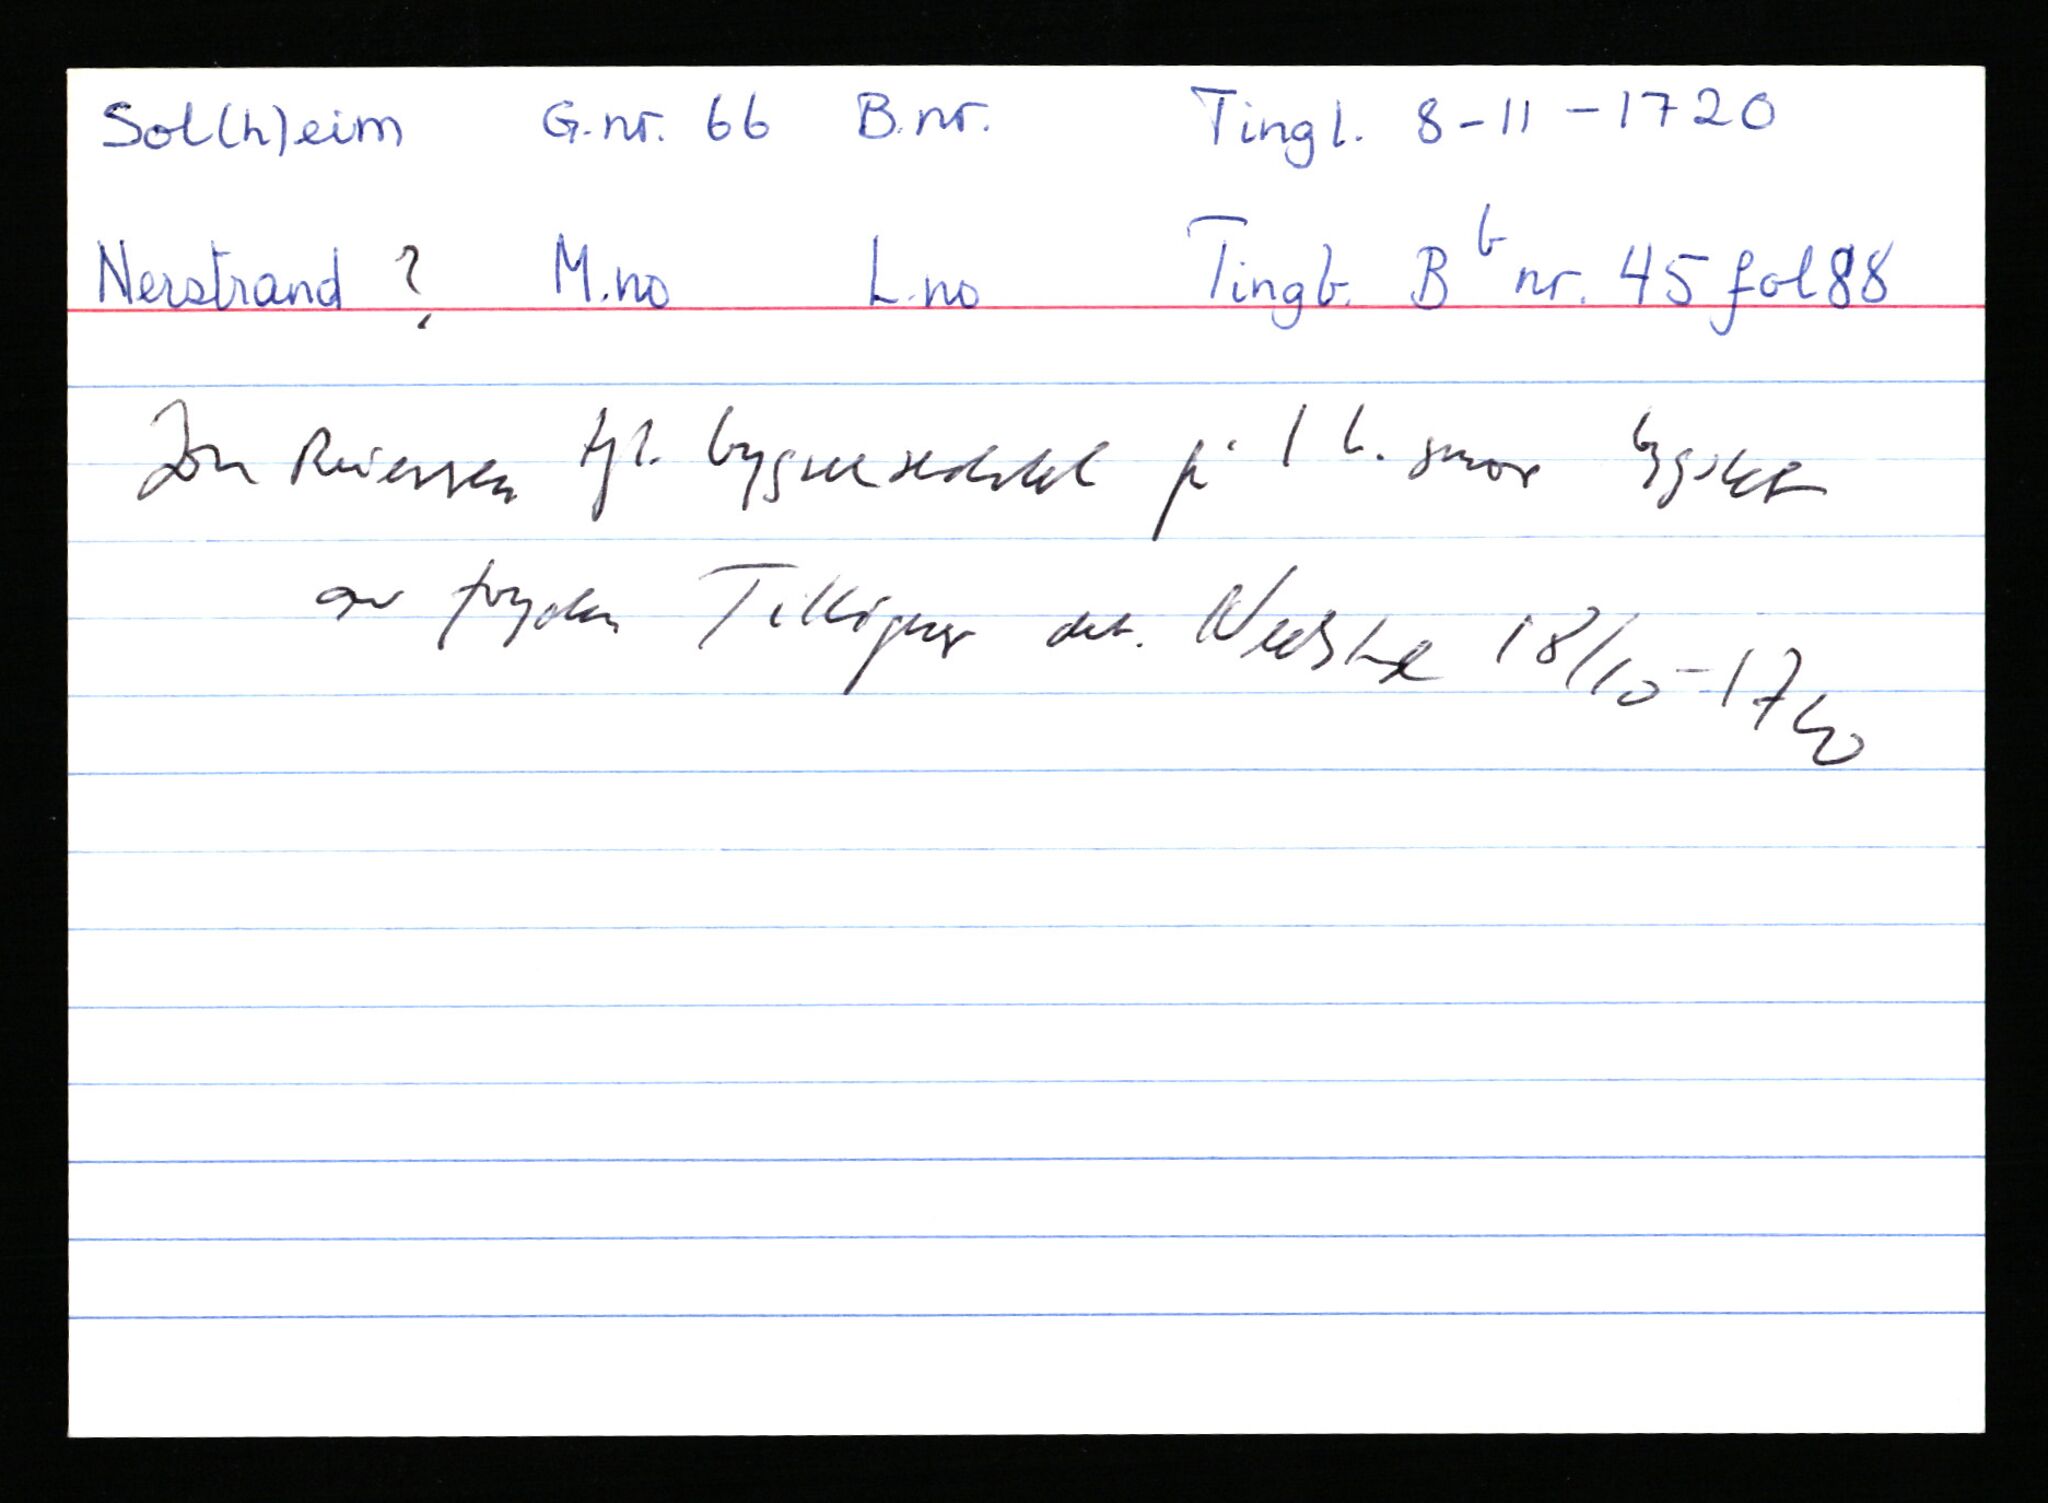 Sol(h)eim G.nr. 66 B.nr. Tingl. 8-11-1720
Nerstrand ? M.no L.no Tingb. B b nr. 45 fol 88
Jon tgl. bygselseddel på 1 b. smør bygslet
av fogden dat. 18/10-1720